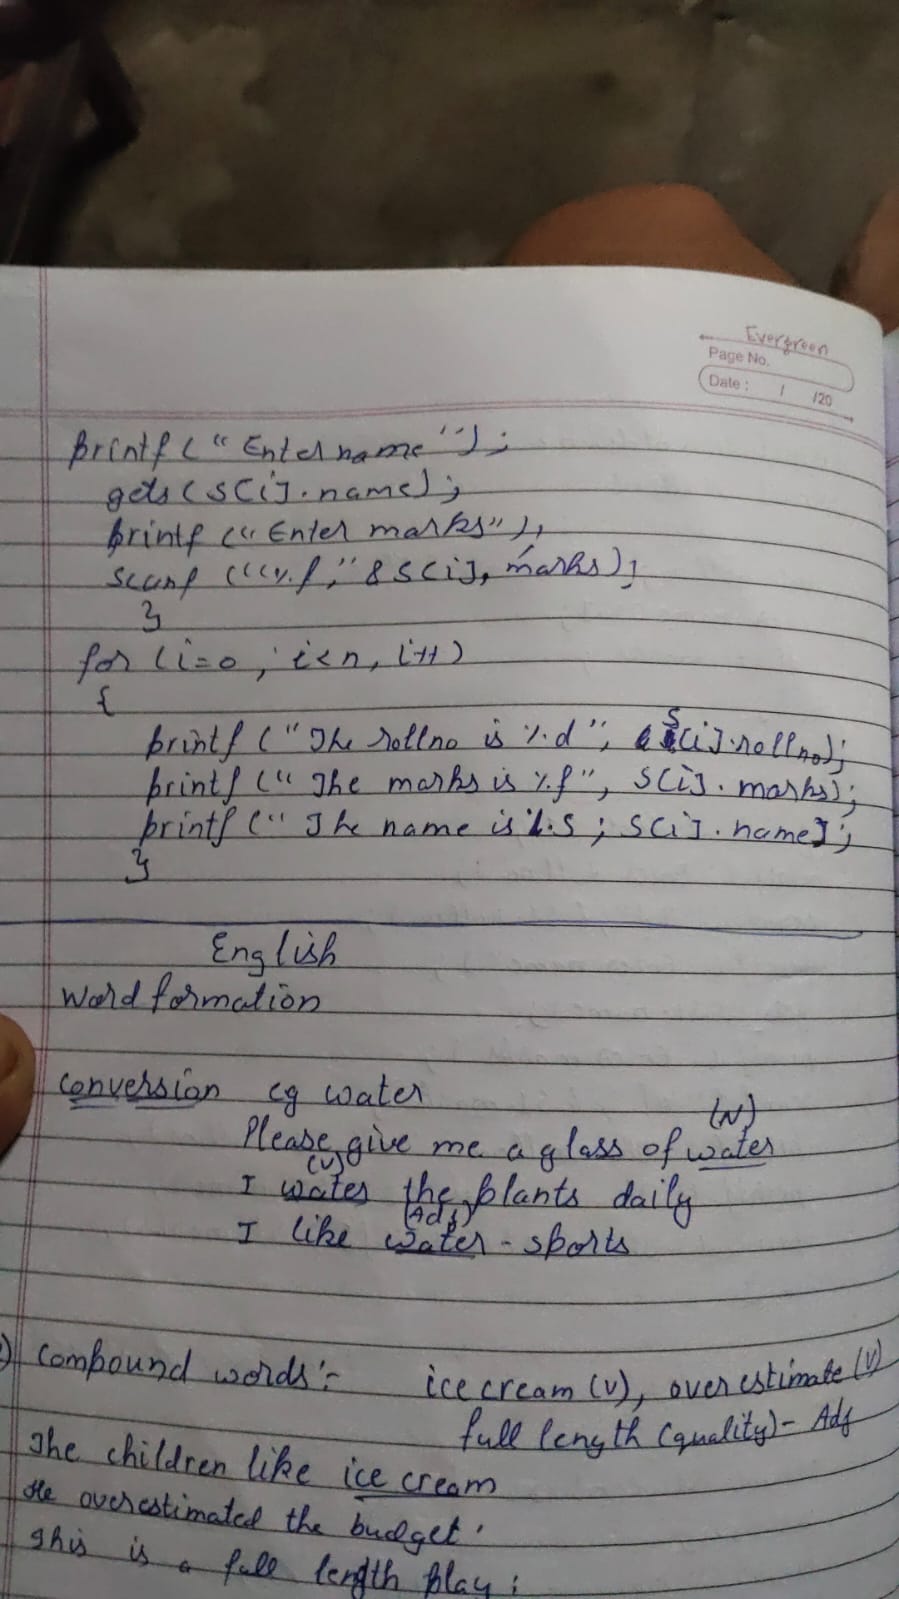 Evergreen
Page No.
Date : / /20
printf ( " Enter name " ) ;
gets ( s[i] . name ) ;
printf ( " Enter marks " ) ,
scanf ( " %f , " & s[i] , marks ) ;
}
for ( i = 0 , i < n , i++ )
{
printf ( " The rollno is %d " , s[i] . rollno ) ;
printf ( " The marks is %f " , s[i] . marks ) ;
printf ( " The name is %s ; s[i] . name ] ;
}
English
Word formation
Conversion eg water
(N)
Please give me a glass of water
(V)
I water the plants daily
(Adj)
I like water - sports
) Compound words :- ice cream (v), over estimate (v)
full length (quality) - Adj
The children like ice cream
He overestimated the budget .
This is a full length play ;